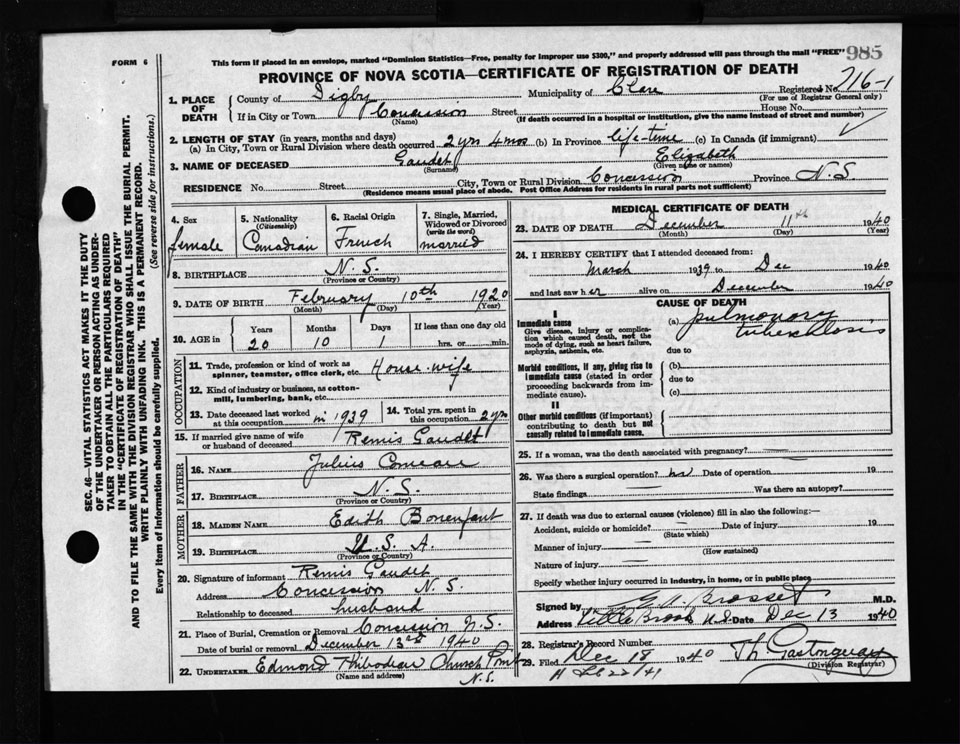 FORM 6
This form if placed in an envelope, marked "Dominion Statistics—Free, penalty for improper use $300," and properly addressed will pass through the mail "FREE" 985
PROVINCE OF NOVA SCOTIA—CERTIFICATE OF REGISTRATION OF DEATH
1. PLACE OF DEATH County of Digby Municipality of Clare Registered No. 716-1
(For use of Registrar General only)
If in City or Town Concession Street House No.
(Name) (If death occurred in a hospital or institution, give the name instead of street and number)
2. LENGTH OF STAY (in years, months and days)
(a) In City, Town or Rural Division where death occurred 2 yrs 4 mos (b) In Province life-time (c) In Canada (if immigrant)
3. NAME OF DECEASED Gaudet Elizabeth
(Surname) (Given name or names)
RESIDENCE No. Street City, Town or Rural Division Concession Province N.S.
(Residence means usual place of abode. Post Office Address for residents in rural parts not sufficient)
4. Sex female
5. Nationality (Citizenship) Canadian
6. Racial Origin French
7. Single, Married, Widowed or Divorced (write the word) married
8. BIRTHPLACE N.S.
(Province or Country)
9. DATE OF BIRTH February 10th 1920
(Month) (Day) (Year)
10. AGE in Years 20 Months 10 Days 1 If less than one day old hrs. or min.
OCCUPATION
11. Trade, profession or kind of work as spinner, teamster, office clerk, etc. House-wife
12. Kind of industry or business, as cotton-mill, lumbering, bank, etc.
13. Date deceased last worked at this occupation in 1939
14. Total yrs. spent in this occupation 2 yrs
15. If married give name of wife or husband of deceased Remis Gaudet
FATHER
16. NAME Julius Comeau
17. BIRTHPLACE N.S.
(Province or Country)
MOTHER
18. MAIDEN NAME Edith Bonenfant
19. BIRTHPLACE U.S.A.
(Province or Country)
20. Signature of informant Remis Gaudet
Address Concession N.S.
Relationship to deceased husband
21. Place of Burial, Cremation or Removal Concession N.S.
Date of burial or removal December 13th 1940
22. UNDERTAKER Edmond Thibodeau Church Point
(Name and address) N.S.
MEDICAL CERTIFICATE OF DEATH
23. DATE OF DEATH December 11th 1940
(Month) (Day) (Year)
24. I HEREBY CERTIFY that I attended deceased from:
March 1939 to Dec 1940
and last saw her alive on December 1940
CAUSE OF DEATH
I
Immediate cause
Give disease, injury or complication which caused death, not the mode of dying, such as heart failure, asphyxia, asthenia, etc.
(a) pulmonary tuberculosis
due to
Morbid conditions, if any, giving rise to immediate cause (stated in order proceeding backwards from immediate cause).
(b)
due to
(c)
II
Other morbid conditions (if important) contributing to death but not causally related to immediate cause.
25. If a woman, was the death associated with pregnancy? —
26. Was there a surgical operation? no Date of operation — 19
State findings Was there an autopsy?
27. If death was due to external causes (violence) fill in also the following:—
Accident, suicide or homicide? — Date of injury 19
(State which)
Manner of injury —
(How sustained)
Nature of injury —
Specify whether injury occurred in industry, in home, or in public place
Signed by Brosset M.D.
Address Little Brook N.S. Date Dec 13 1940
28. Registrar's Record Number
29. Filed Dec 18 1940 Th Gastonguay
(Division Registrar)
SEC. 46—VITAL STATISTICS ACT MAKES IT THE DUTY
OF THE UNDERTAKER OR PERSON ACTING AS UNDER-
TAKER TO OBTAIN ALL THE PARTICULARS REQUIRED
IN THE "CERTIFICATE OF REGISTRATION OF DEATH"
AND TO FILE THE SAME WITH THE DIVISION REGISTRAR WHO SHALL ISSUE THE BURIAL PERMIT.
WRITE PLAINLY WITH UNFADING INK. THIS IS A PERMANENT RECORD.
Every item of information should be carefully supplied. (See reverse side for instructions.)